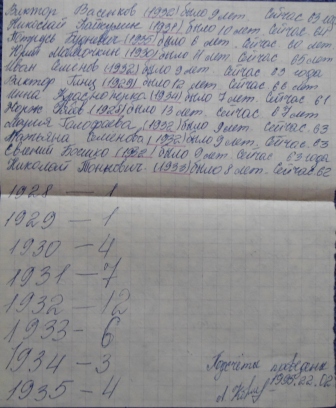 Виктор Васенков (1932) было 9 лет. Сейчас 63 года
Николай (1931) было 10 лет. Сейчас 64
(1935) было 6 лет. Сейчас 60 лет
Юрий (1930) было 11 лет. Сейчас 65 лет
Иван Семенов (1932) было 9 лет. Сейчас 63 года
Виктор Ганц (1929) было 12 лет. Сейчас 66 лет
Нина (1934) было 7 лет. Сейчас 61
(1928) было 13 лет. Сейчас 67 лет
Мария (1932) было 9 лет. Сейчас 63
Татьяна Семенова (1932) было 9 лет. Сейчас 63
Евгений (1932) было 9 лет. Сейчас 63 года
Николай Тонкович (1933) было 8 лет. Сейчас 62
1928 – 1
1929 – 1
1930 – 4
1931 – 7
1932 – 12
1933 – 6
1934 – 3
1935 – 4
Подсчёты проведены
1995.22.02